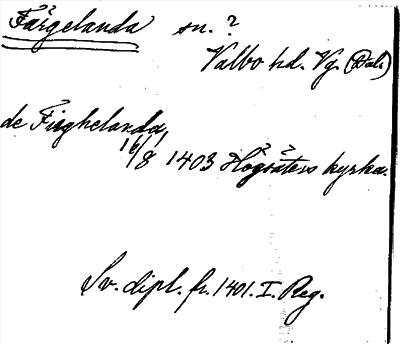 Färgelanda sn. ?
Valbo hd. Vg. (Dals)
de Firghelanda,
16/8 1403 Högsäters kyrka.
Sv. dipl. fr. 1401. I. Reg.